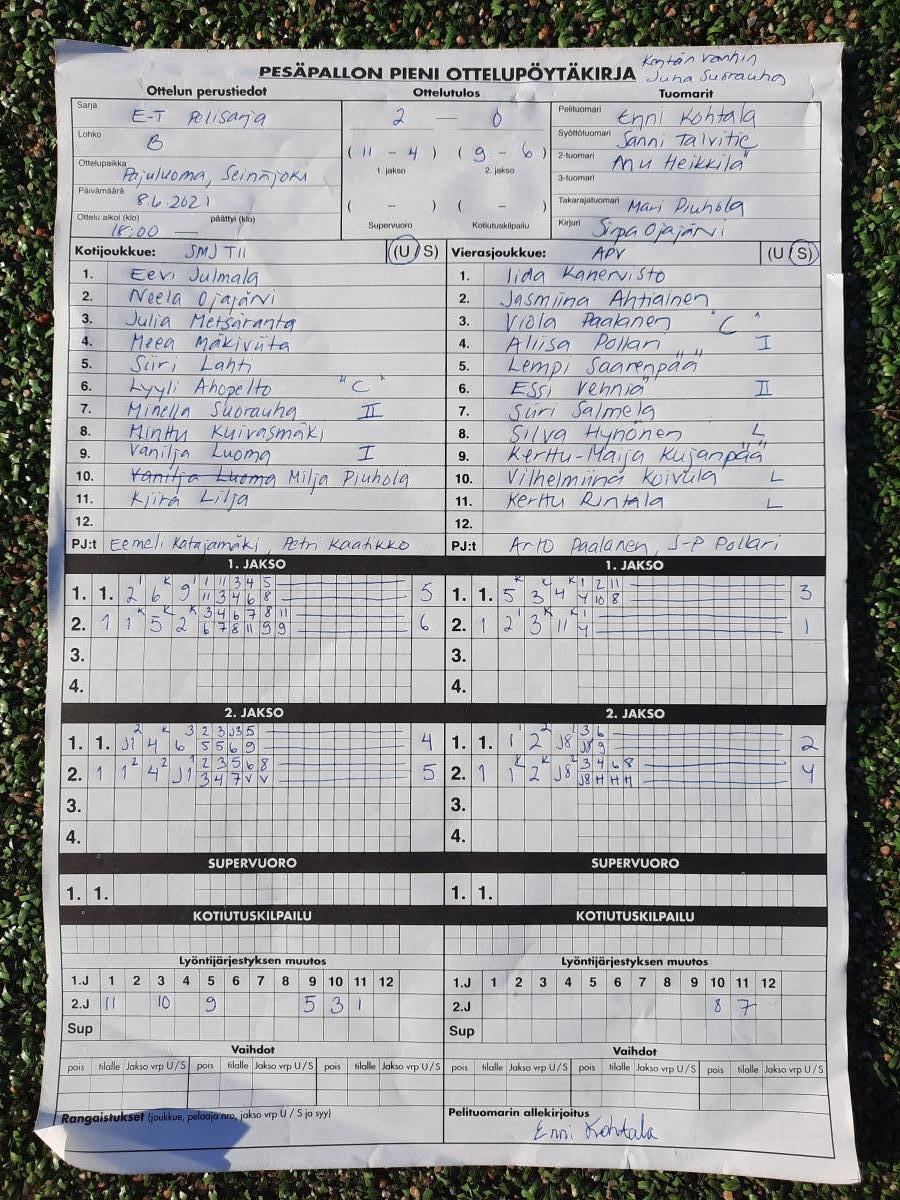 Kentän vanhin
Juha Suorauha
PESÄPALLON PIENI OTTELUPÖYTÄKIRJA
Ottelun perustiedot Ottelutulos Tuomarit
Sarja E-T Pelisarja
Lohko B
Ottelupaikka Pajuluoma, Seinäjoki
Päivämäärä 8.6.2021
Ottelu alkoi (klo) päättyi (klo)
18:00 —
2 — 0
( 11 - 4 ) ( 9 - 6 )
1. jakso 2. jakso
( - ) ( - )
Supervuoro Kotiutuskilpailu
Pelituomari Enni Kohtala
Syöttötuomari Sanni Talvitie
2-tuomari Anu Heikkilä
3-tuomari
Takarajatuomari Mari Piuhola
Kirjuri Sirpa Ojajärvi
Kotijoukkue: SMJ TII (U / S)
1. Eevi Julmala
2. Neela Ojajärvi
3. Julia Metsäranta
4. Meea Mäkiviita
5. Siiri Lahti
6. Lyyli Ahopelto "C"
7. Minella Suorauha II
8. Minttu Kuivasmäki
9. Vanilja Luoma I
10. Vanilja Luoma Milja Piuhola
11. Kiira Lilja
12.
PJ:t Eemeli Katajamäki, Petri Kaatikko
Vierasjoukkue: APV (U / S)
1. Iida Kanervisto
2. Jasmiina Ahtiainen
3. Viola Paalanen "C"
4. Aliisa Pollari I
5. Lempi Saarenpää
6. Essi Vehniä II
7. Siiri Salmela
8. Silva Hynönen L
9. Kerttu-Maija Kujanpää
10. Vilhelmiina Koivula L
11. Kerttu Rintala L
12.
PJ:t Arto Paalanen, J-P Pollari
1. JAKSO
1. 1. 2 6 9 5
1 11 3 4 5
11 3 4 6 8
2. 1 1 5 2 6
3 4 6 7 8 11
6 7 8 11 9 9
3.
4.
1. JAKSO
1. 1. 5 3 4 3
1 2 11
4 10 8
2. 1 2 3 11 1
1
4
3.
4.
2. JAKSO
1. 1. J1 4 6 4
2 3 J3 5
5 5 6 9
2. 1 1 4 J1 5
2 3 5 6 8
3 4 7 V V
3.
4.
2. JAKSO
1. 1. 1 2 J8 2
3 6
J8 9
2. 1 1 2 J8 4
3 4 6 8
J8 H H H
3.
4.
SUPERVUORO SUPERVUORO
1. 1. 1. 1.
KOTIUTUSKILPAILU KOTIUTUSKILPAILU
Lyöntijärjestyksen muutos Lyöntijärjestyksen muutos
1.J 1 2 3 4 5 6 7 8 9 10 11 12
2.J 11 10 9 5 3 1
Sup
1.J 1 2 3 4 5 6 7 8 9 10 11 12
2.J 8 7
Sup
Vaihdot Vaihdot
pois tilalle Jakso vrp U / S pois tilalle Jakso vrp U / S pois tilalle Jakso vrp U / S
pois tilalle Jakso vrp U / S pois tilalle Jakso vrp U / S pois tilalle Jakso vrp U / S
Rangaistukset (joukkue, pelaaja nro, jakso vrp U / S ja syy)
Pelituomarin allekirjoitus
Enni Kohtala